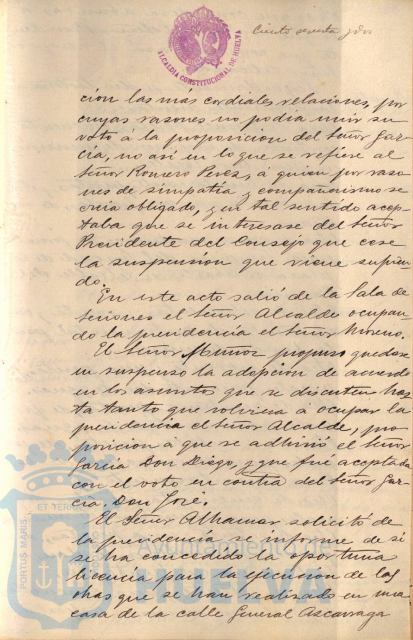 Ciento sesenta y dos
ALCALDIA CONSTITUCIONAL DE HUELVA
cion las más cordiales relaciones, por
cuyas razones no podia unir su
voto á la proposicion del Señor Gar-
cia, no asi en lo que se refiere al
Señor Romero Perez, á quien por razo
nes de simpatía y compañerismo se
creia obligado, y en tal sentido acep-
taba que se interesase del Señor
Presidente del Consejo que cese
la suspensión que viene sufrien-
do.
En este acto salió de la Sala de
sesiones el Señor Alcalde ocupan-
do la presidencia el Señor Moreno.
El Señor Muñoz propuso quedase
en suspenso la adopcion de acuerdo
en los asuntos que se discuten has
ta tanto que volviera á ocupar la
presidencia el Señor Alcalde, pro-
posicion á que se adhirió el Señor
Garcia Don Diego, y que fué aceptada
con el voto en contra del Señor Gar-
cia Don José.
El Señor Alhamar solicitó de
la presidencia se informe de si
se ha concedido la oportuna
licencia para la ejecucion de las
obras que se han realizado en una
casa de la calle General Azcarraga
PORTUS MARIS
ET TERRE